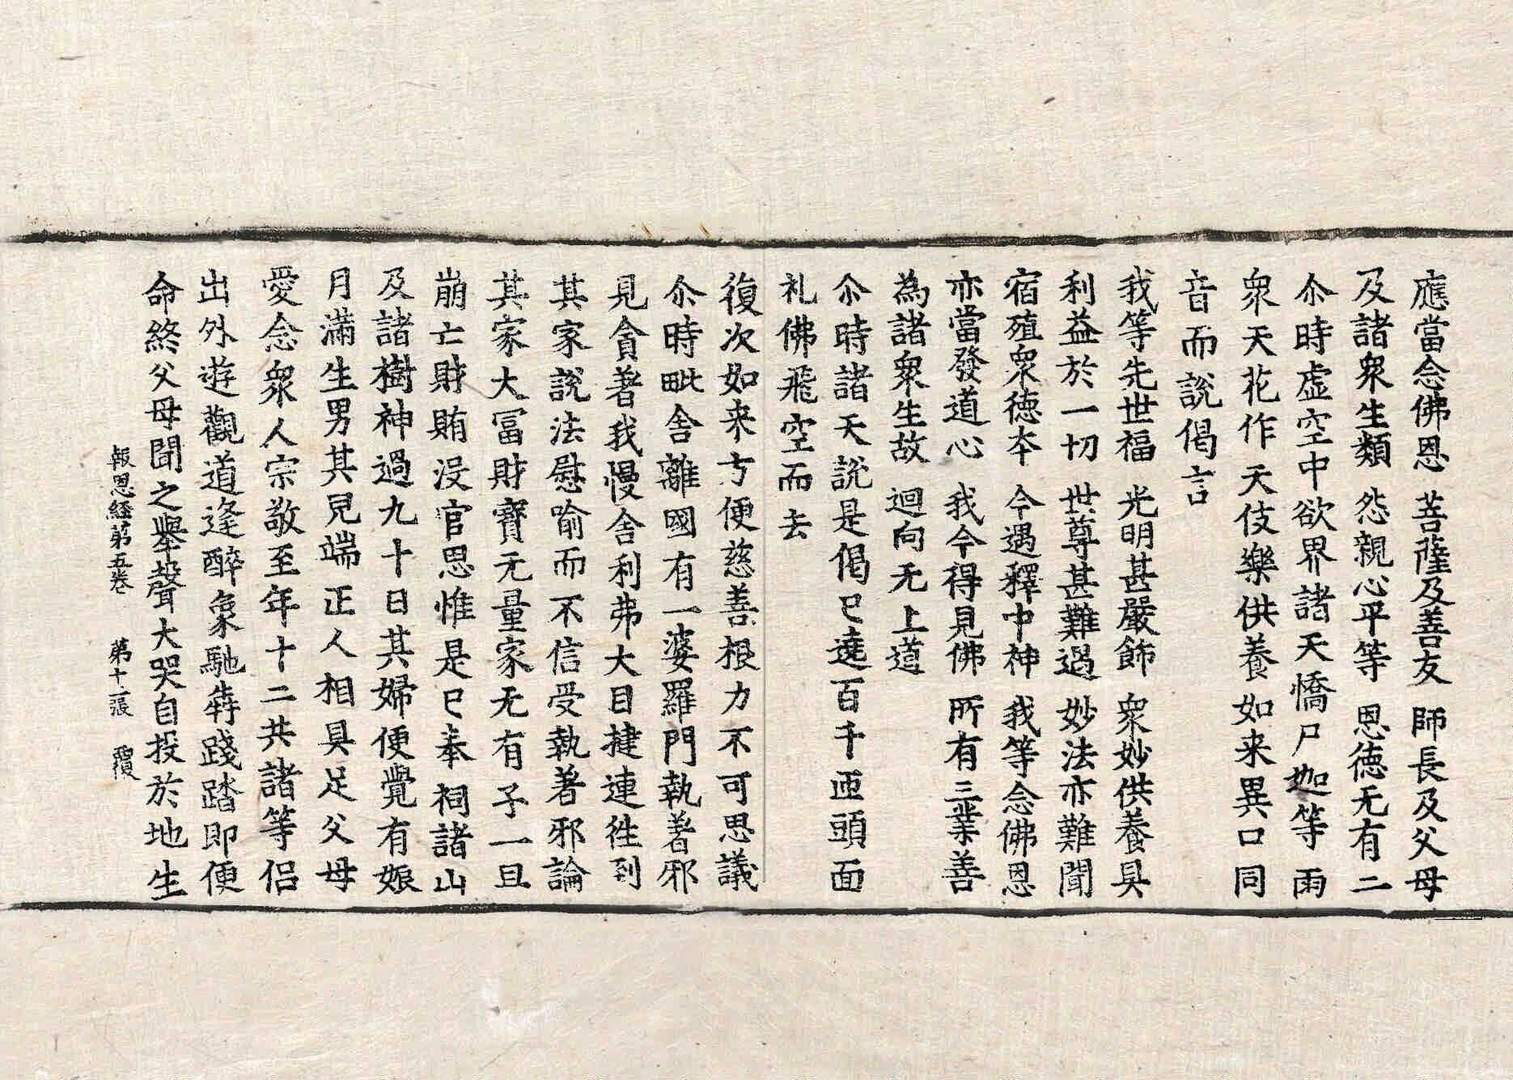 應當念佛恩 菩薩及善友 師長及父母
及諸衆生類 怨親心平等 恩德无有二
尒時虛空中欲界諸天憍尸迦等雨
衆天花作天伎樂供養如来異口同
音而說偈言
我等先世福 光明甚嚴飾 衆妙供養具
利益於一切 世尊甚難遇 妙法亦難聞
宿殖衆德夲 今遇釋中神 我等念佛恩
亦當發道心 我今得見佛 所有三業善
為諸衆生故 迴向无上道
尒時諸天說是偈已遶百千匝頭面
礼佛飛空而去
復次如来方便慈善根力不可思議
尒時毗舍離國有一婆羅門執著邪
見貪著我慢舍利弗大目揵連往到
其家說法慰喻而不信受執著邪論
其家大冨財寶无量家无有子一旦
崩亡財賄没官思惟是已奉祠諸山
及諸樹神過九十日其婦便覺有娠
月滿生男其兒端正人相具足父母
愛念衆人宗敬至年十二共諸等侣
出外遊觀道逢醉象馳犇踐踏即便
命終父母聞之舉聲大哭自投於地生
報恩經第五卷 第十一張 覆